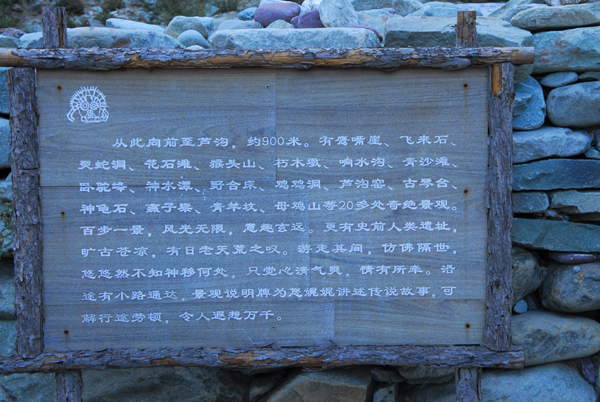 从此向前至芦沟，约900米。有鹰嘴崖、飞来石、
灵蛇洞、花石滩、猴头山、朽木墩、响水沟、青沙滩、
卧驼峰、神水潭、野合床、鸡鸡洞、芦沟窑、古琴台、
神龟石、燕子梁、青羊坟、母鸡山等20多处奇绝景观。
百步一景，风光无限，意趣玄远。更有史前人类遗址，
旷古苍凉，有日老天荒之叹。游走其间，仿佛隔世，
悠悠然不知神移何处，只觉心清气爽，情有所牵。沿
途有小路通达，景观说明牌为您娓娓讲述传说故事，可
解行途劳顿，令人遐想万千。